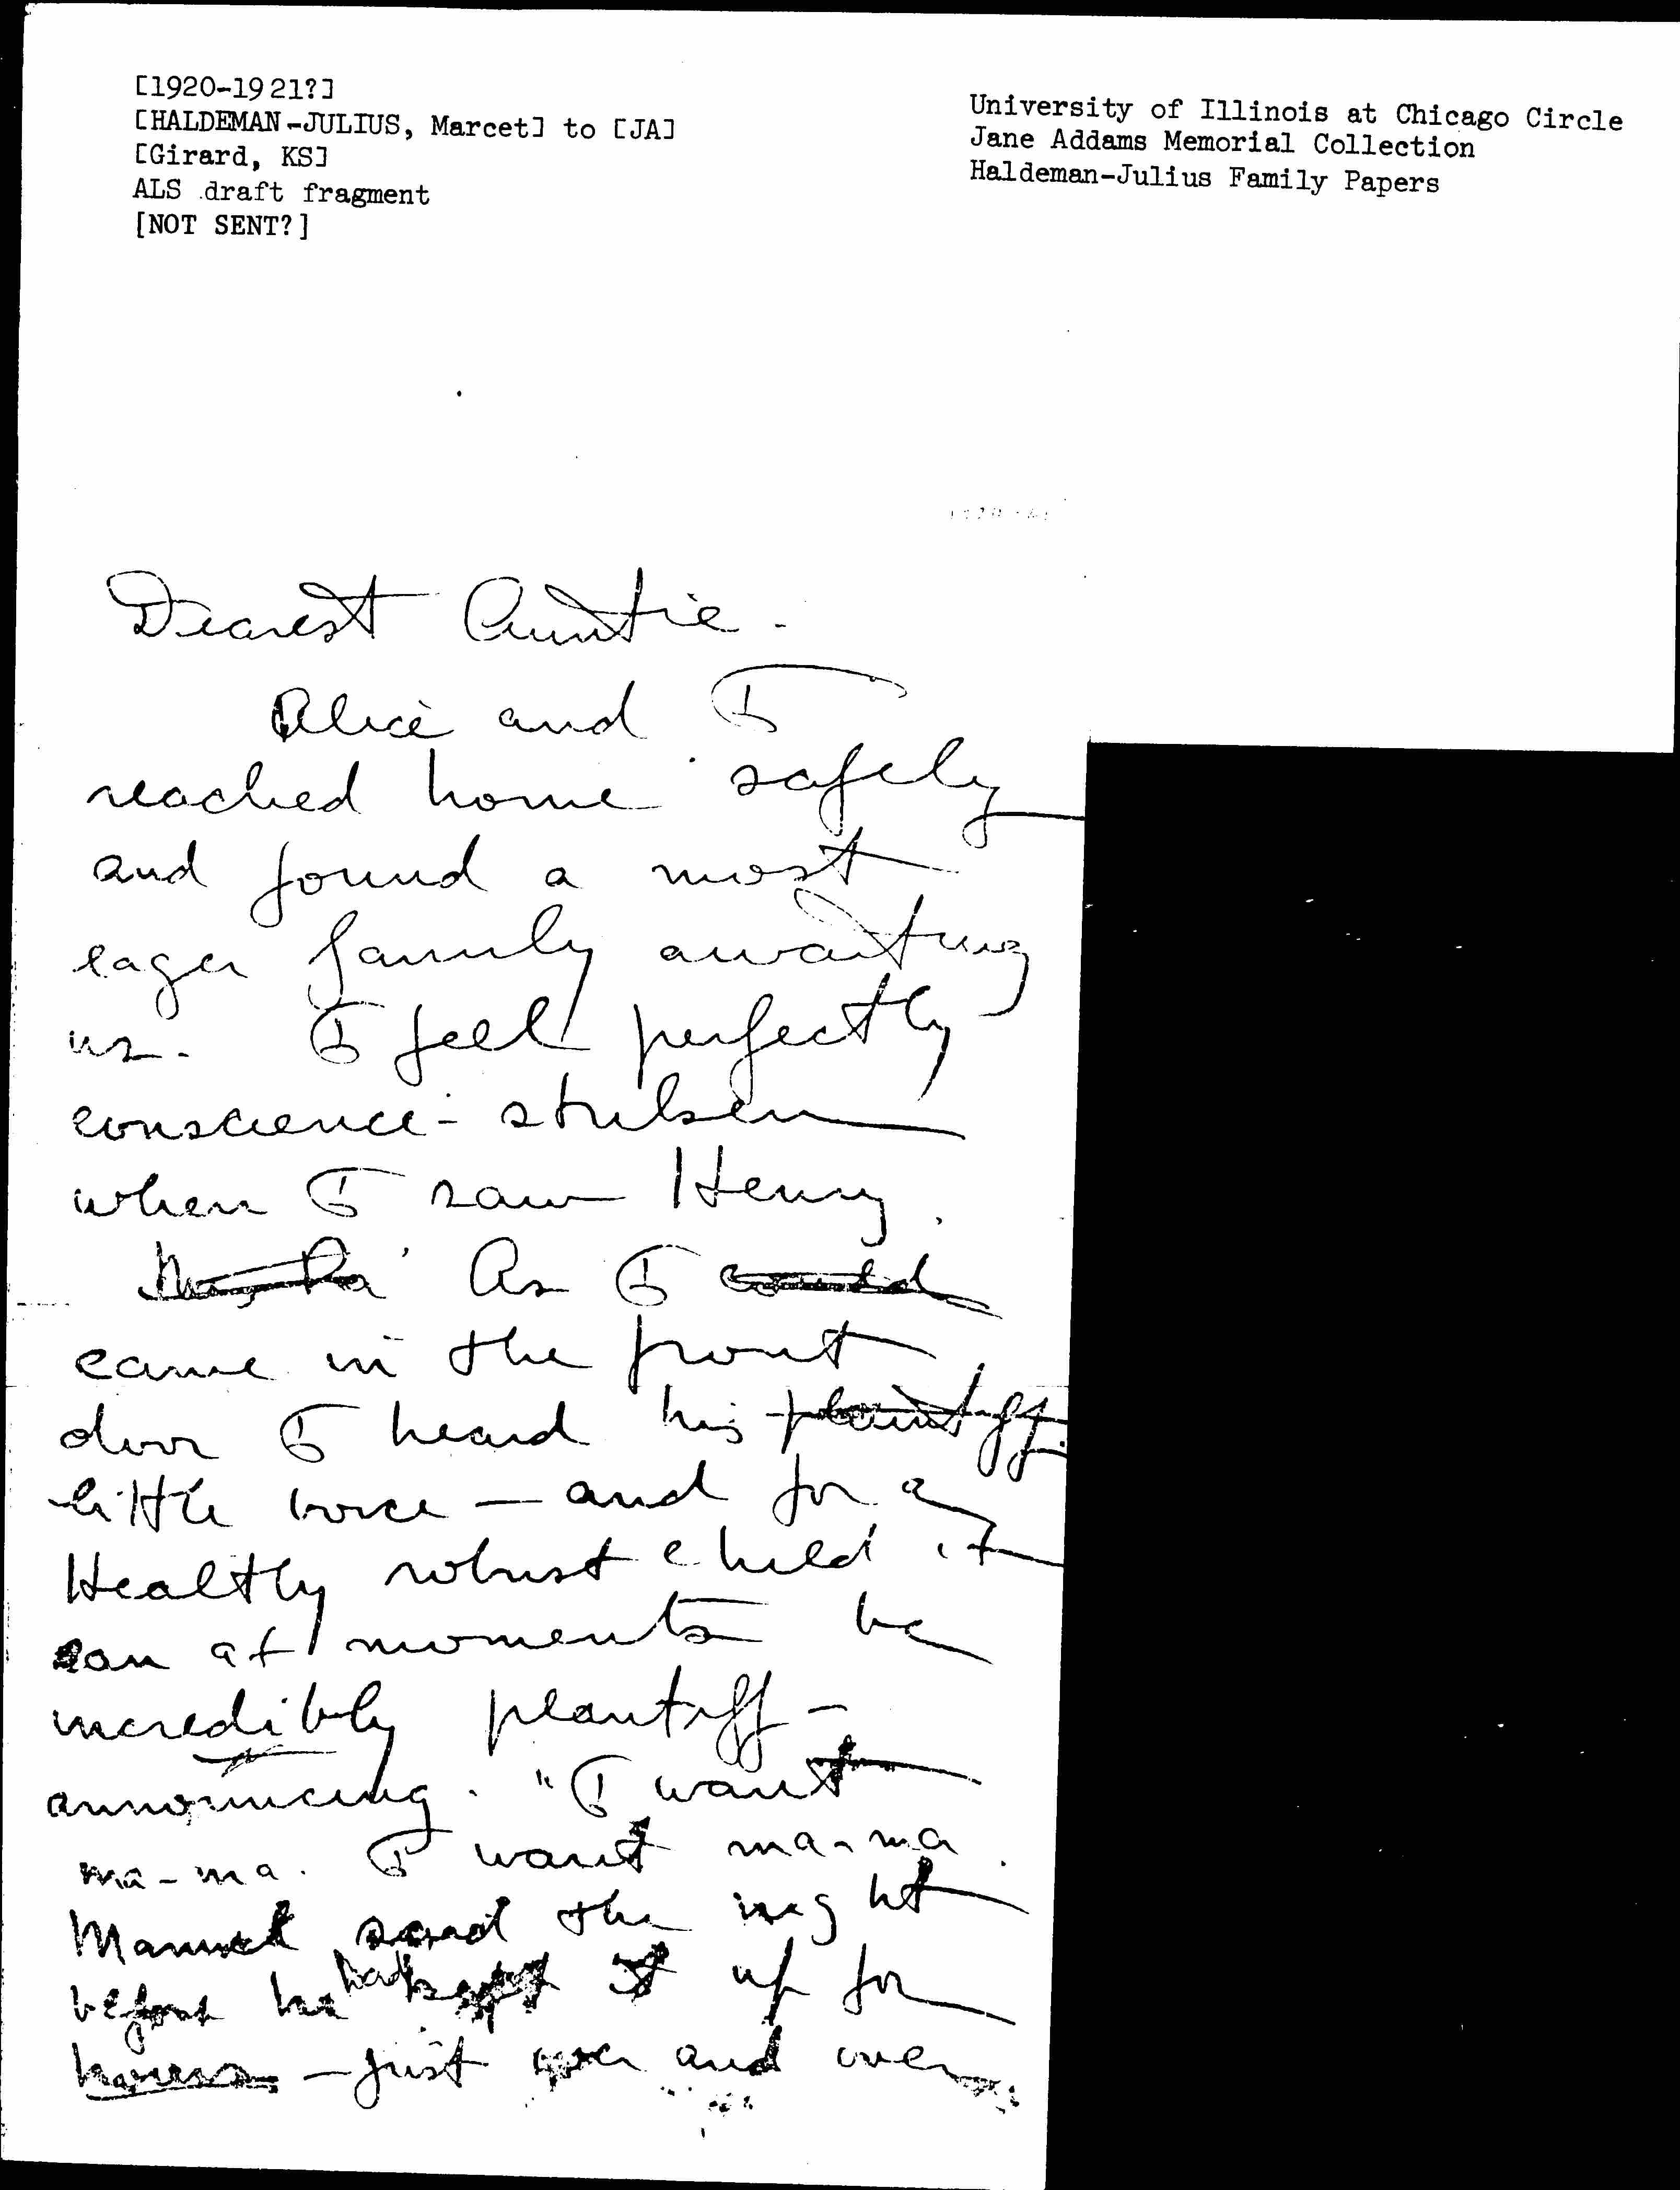 [1920-1921?]
[HALDEMAN-JULIUS, Marcet] to [JA]
[Girard, KS]
ALS draft fragment
[NOT SENT?]
University of Illinois at Chicago Circle
Jane Addams Memorial Collection
Haldeman-Julius Family Papers
Dearest Auntie.
Alice and I
reached home safely
and found a most
eager family awaiting
us. I feel perfectly
conscience-stricken
when I saw Henry.
As I could
came in the front
door I heard his plaintiff
little voice — and for a
Healthy robust child it
can at moments be
incredibly plantiff -
announcing. "I want
ma-ma. I want ma-ma.
Manuel said the night
before he had kept it up for
hours - just over and over